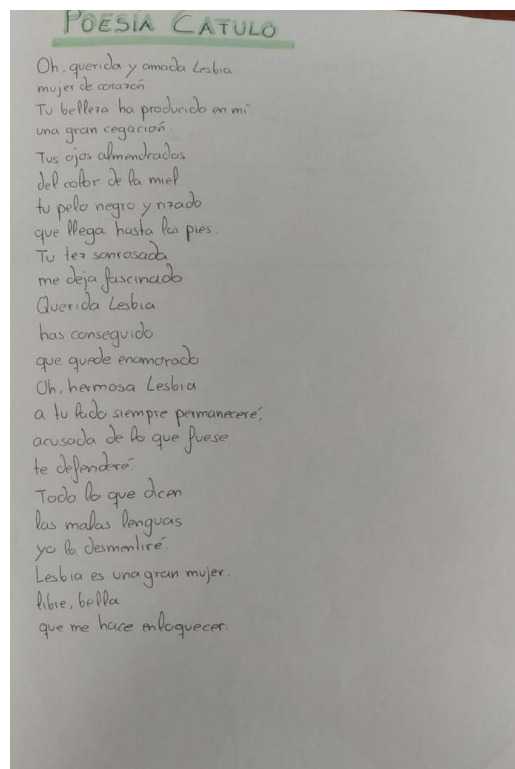 POESIA CATULO
Oh, querida y amada Lesbia
mujer de corazón.
Tu belleza ha producido en mi
una gran cegación.
Tus ojos almendrados
del color de la miel
tu pelo negro y rizado
que llega hasta los pies.
Tu tez sonrosada
me deja fascinado
Querida Lesbia
has conseguido
que quede enamorado
Oh, hermosa Lesbia
a tu lado siempre permaneceré,
acusada de lo que fuese
te defenderé.
Todo lo que dicen
las malas lenguas
yo lo desmentiré.
Lesbia es una gran mujer.
libre, bella
que me hace enloquecer.